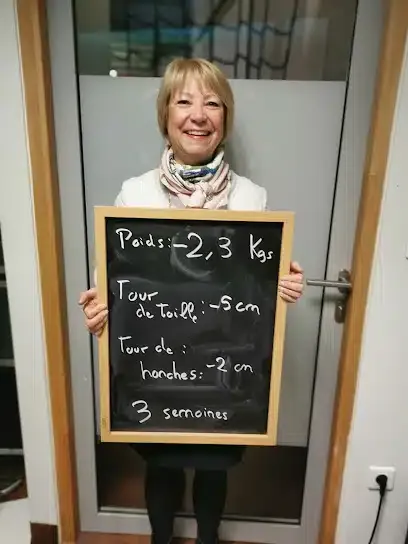 Poids: -2,3 Kgs
Tour
de taille: -5 cm
Tour de :
hanches: -2 cm
3 semaines